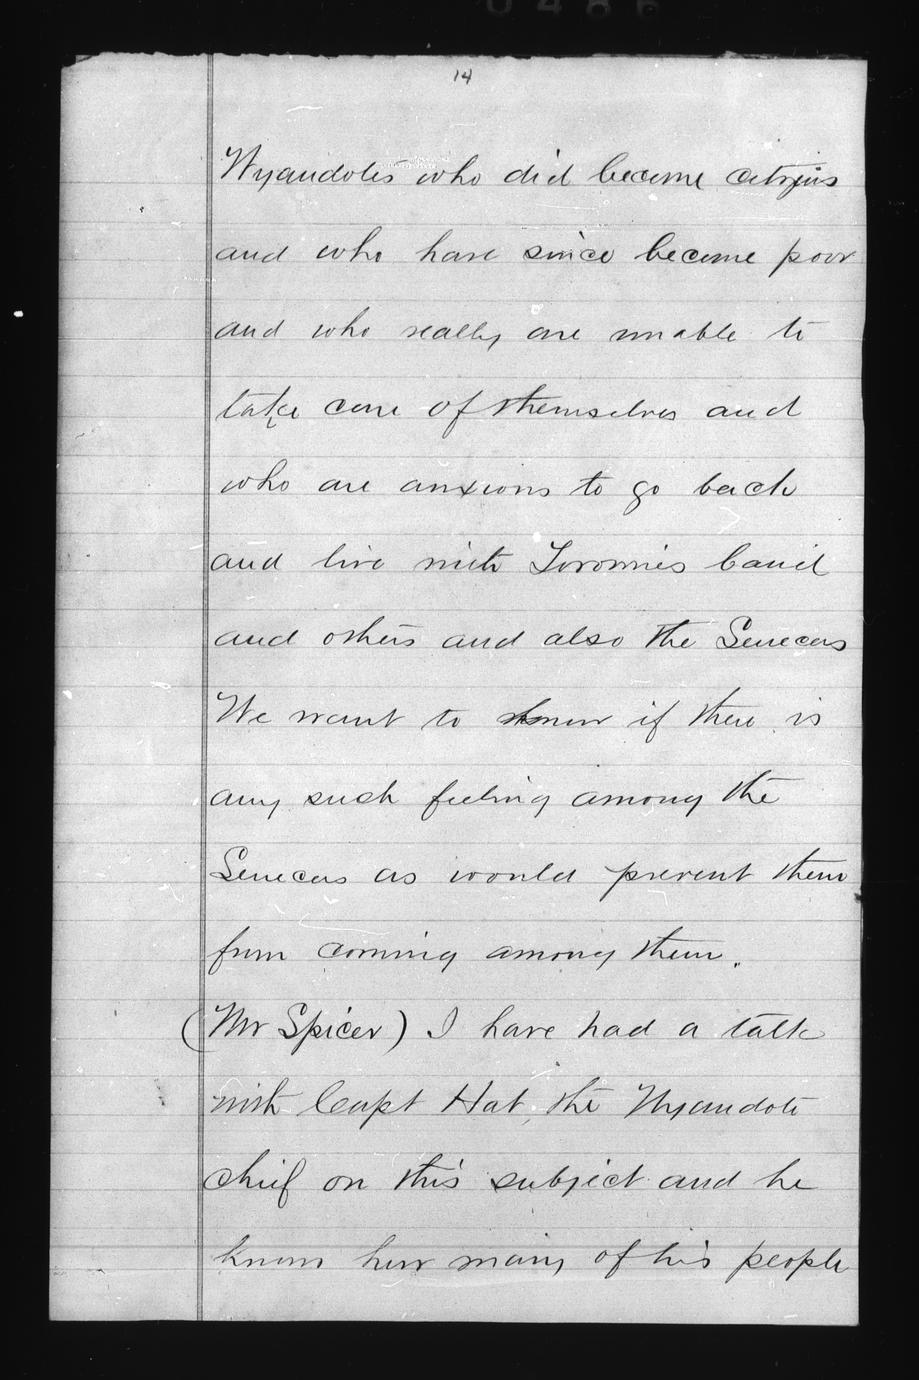 14
Wyandotts who did become citizens
and who have since become poor
and who really are unable to
take care of themselves and
who are anxious to go back
and live with band
and others and also the Senecas
We want to know if there is
any such feeling among the
Senecas as would prevent them
from coming among them.
(Mr Spicer) I have had a talk
with Capt Hat, the Wyandott
chief on this subject and he
knows how many of his people